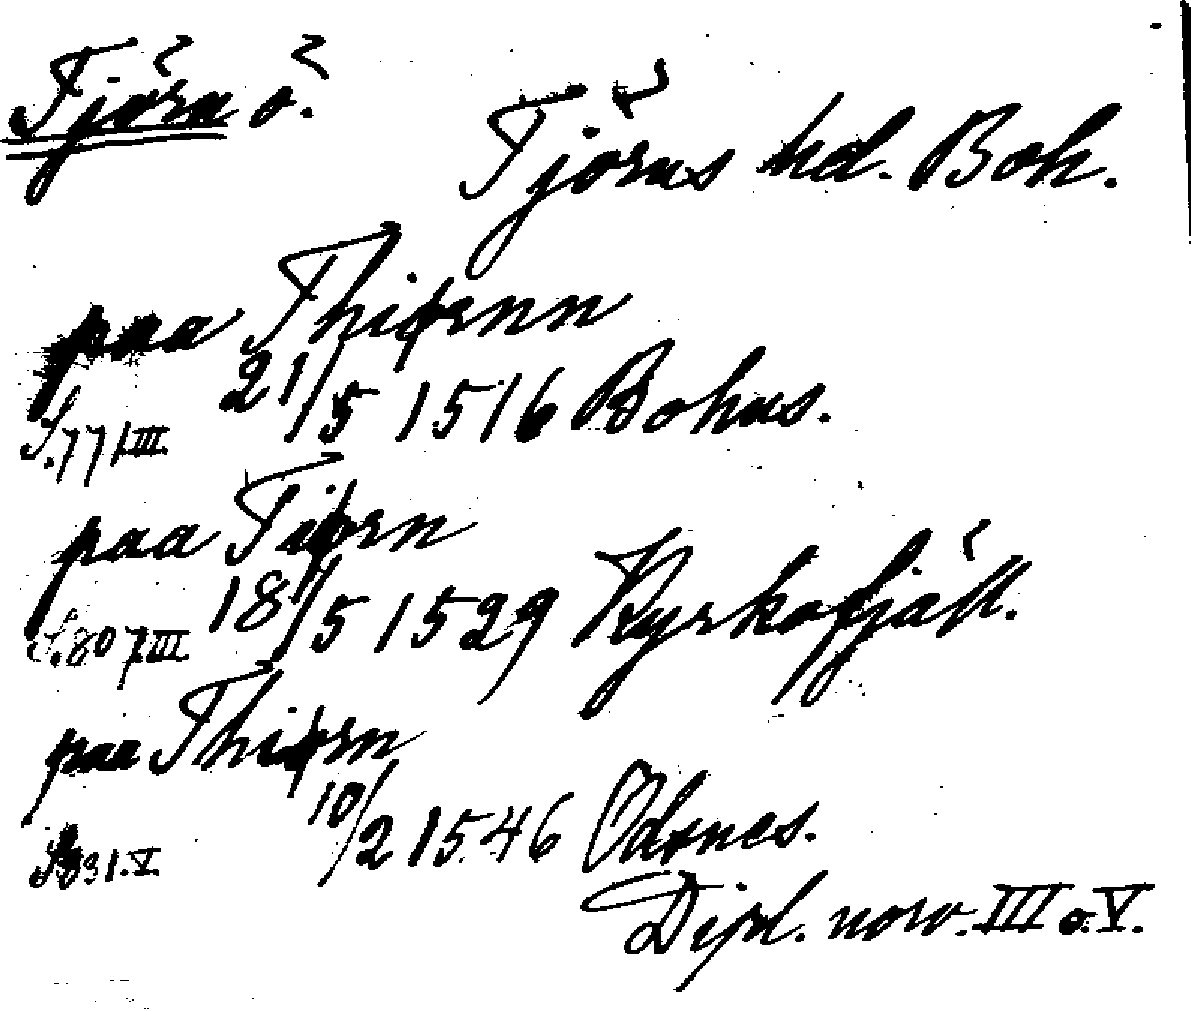 Tjörn ö.
Tjörns hd. Boh.
paa Thiørnn
21/5 1516 Bohus.
S. 771 III.
paa Tiørn
18/5 1529 Kyrkofjäll.
S. 807 III
paa Thiørn
10/2 1546 Odsnes.
S. 831. V.
Dipl. norv. III o. V.